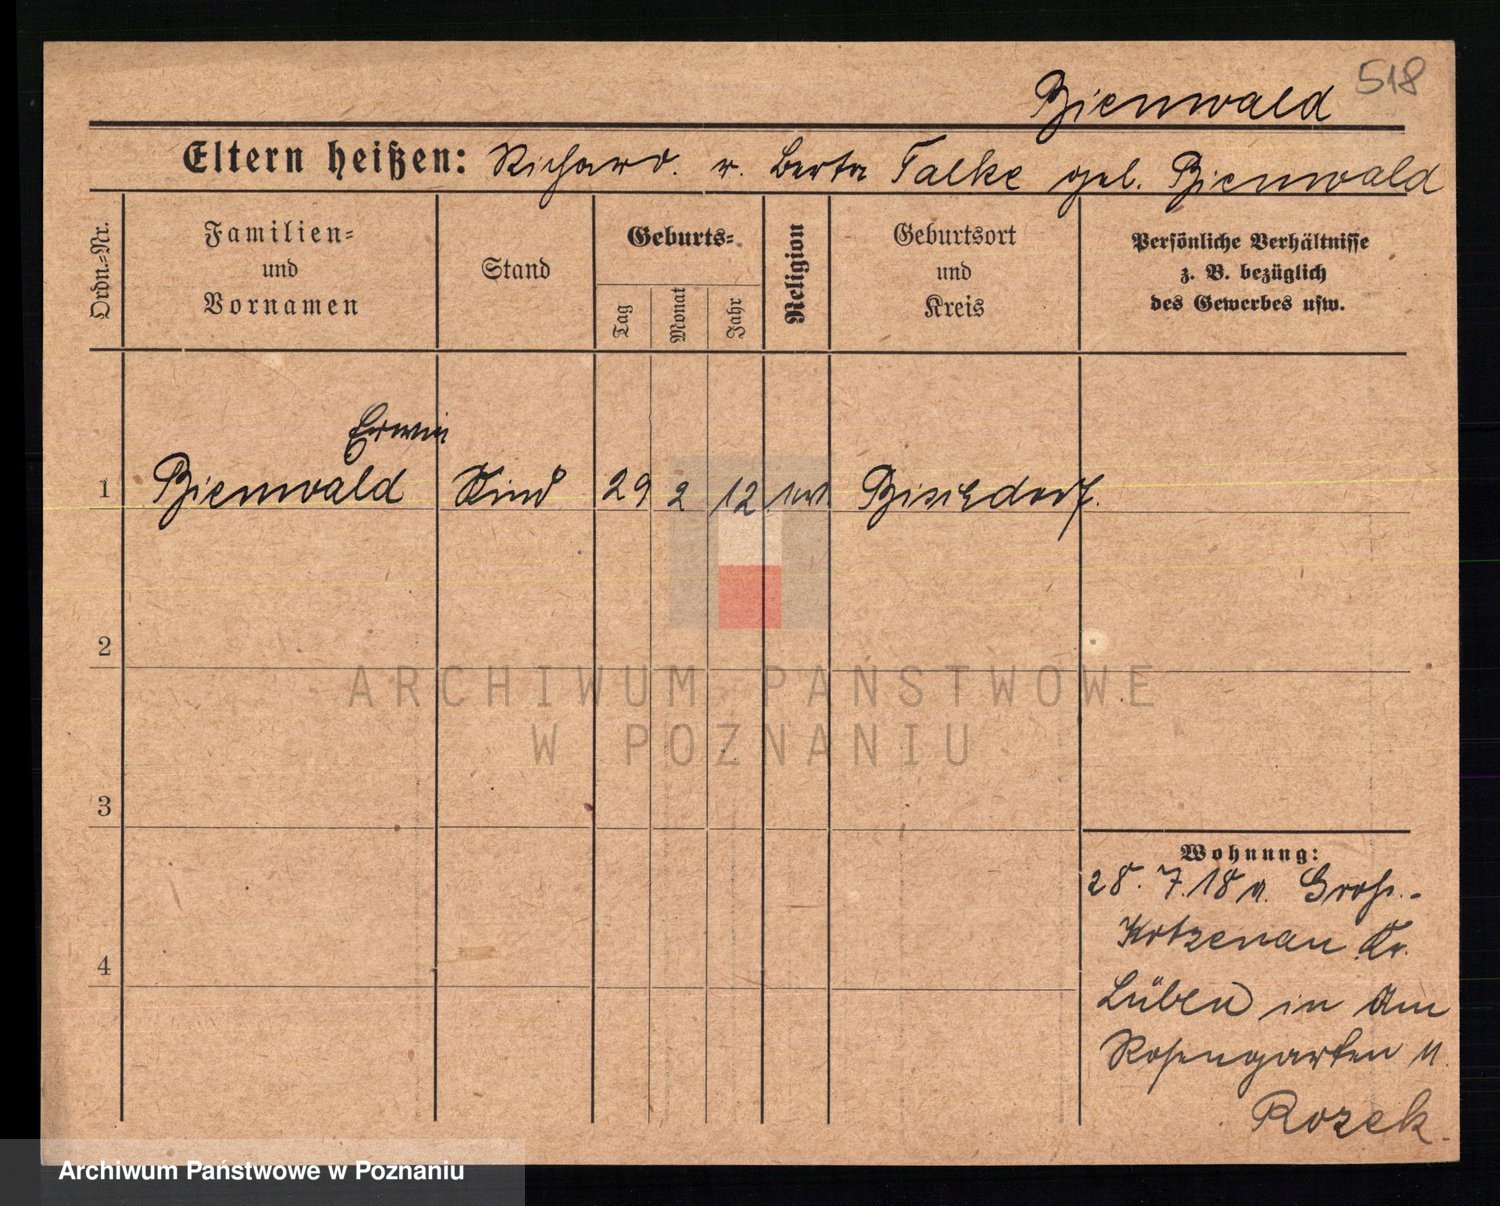 518
Bienwald
Eltern heißen: Richard. u. Berta Talke geb. Bienwald
Ordn.=Nr.
Familien=
und
Vornamen
Stand
Geburts=
Tag
Monat
Jahr
Religion
Geburtsort
und
Kreis
Persönliche Verhältnisse
z. B. bezüglich
des Gewerbes usw.
Erwin
1 Bienwald Kind 29 2 12 Bischdorf.
2
3
4
Wohnung:
28. 7. 18 a. Groß-
Kotzenau Kr.
Lüben in Am
Rosengarten 11.
Rozek.
ARCHIWUM PAŃSTWOWE
W POZNANIU
Archiwum Państwowe w Poznaniu